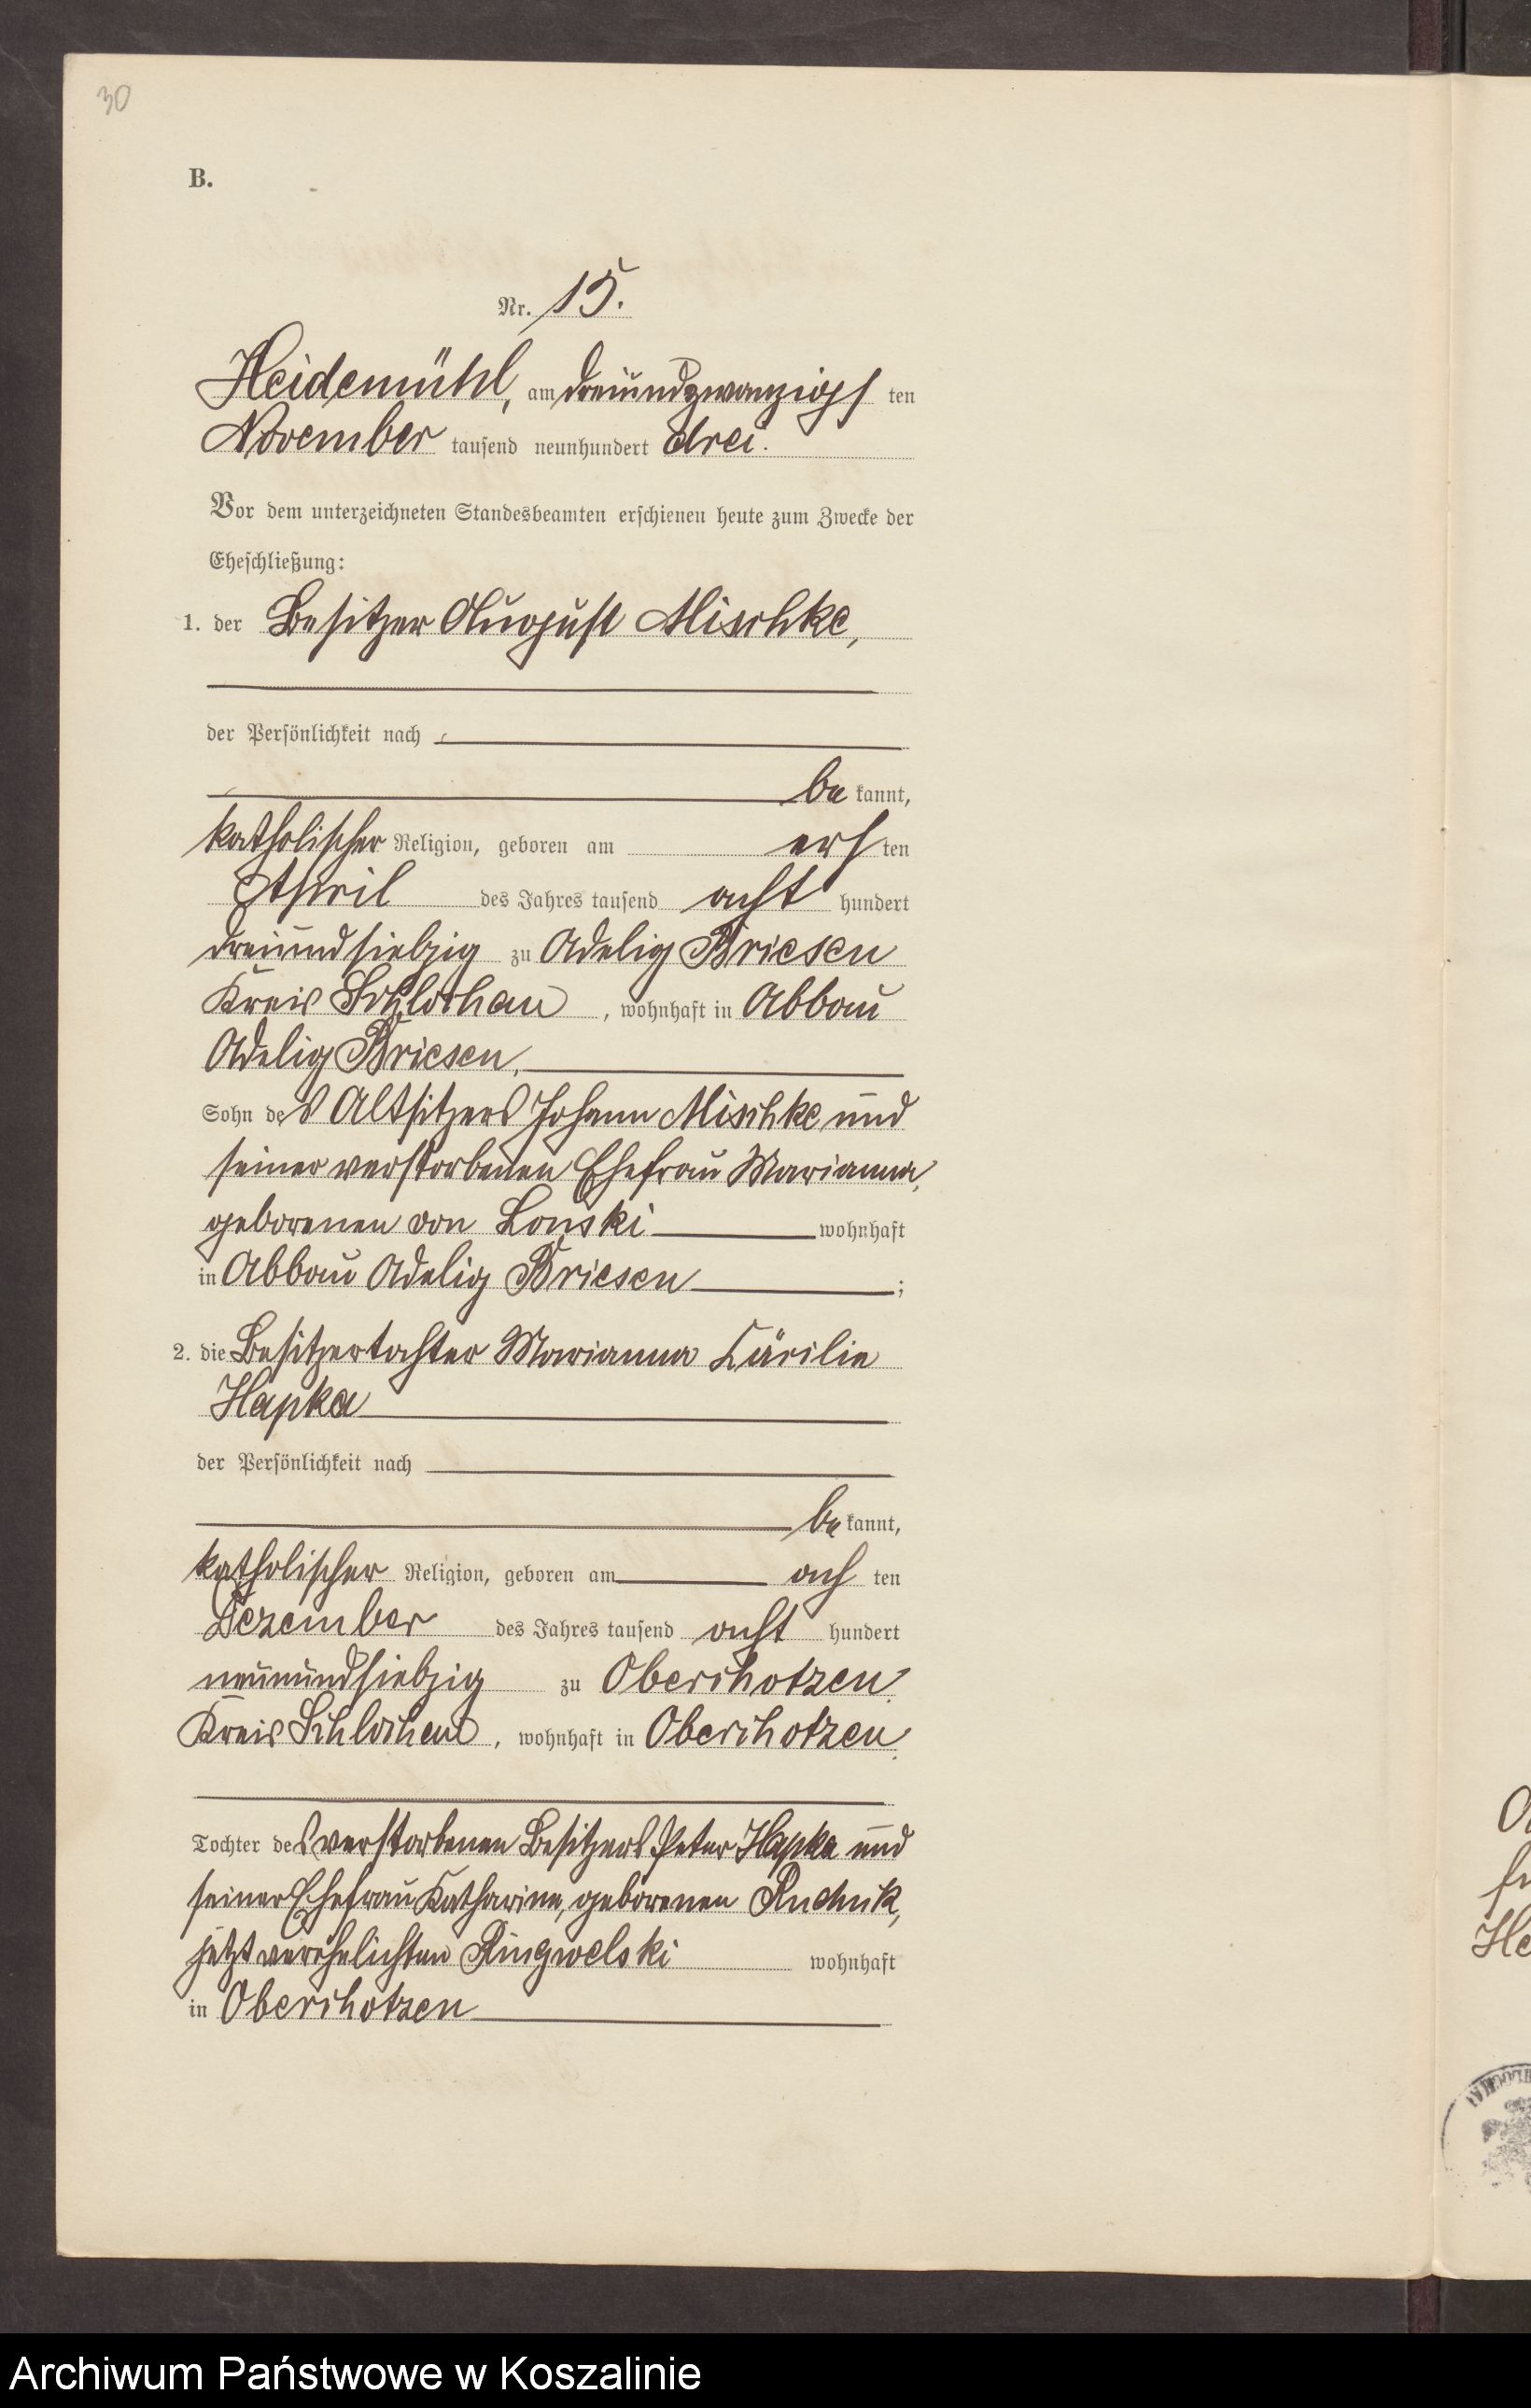 30
B.
Nr. 15.
Heidemühl, am dreiundzwanzigsten
November tausend neunhundert drei.
Vor dem unterzeichneten Standesbeamten erschienen heute zum Zwecke der
Eheschließung:
1. der Besitzer August Mischke,
der Persönlichkeit nach
bekannt,
katholischer Religion, geboren am ersten
April des Jahres tausend acht hundert
dreiundsiebzig zu Adelig Briesen
Kreis Schlochau, wohnhaft in Abbau
Adelig Briesen,
Sohn des Altsitzers Johann Mischke und
seiner verstorbenen Ehefrau Marianna,
geborenen von Lonski wohnhaft
in Abbau Adelig Briesen;
2. die Besitzertochter Marianna Cäcilie
Hapka
der Persönlichkeit nach
bekannt,
katholischer Religion, geboren am achten
Dezember des Jahres tausend acht hundert
neunundsiebzig zu Oberchotzen
Kreis Schlochau, wohnhaft in Oberchotzen
Tochter des verstorbenen Besitzers Peter Hapka und
seiner Ehefrau Katharina, geborenen Rudnik,
jetzt verehelichten Ringwelski wohnhaft
in Oberchotzen
Archiwum Państwowe w Koszalinie